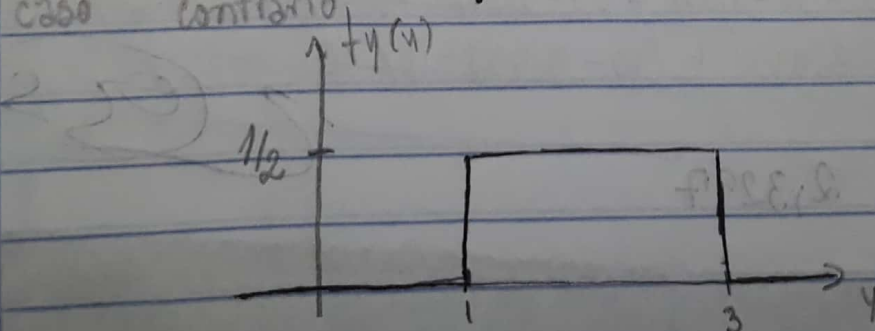 caso contrário
fy(y)
1/2
1 3 y